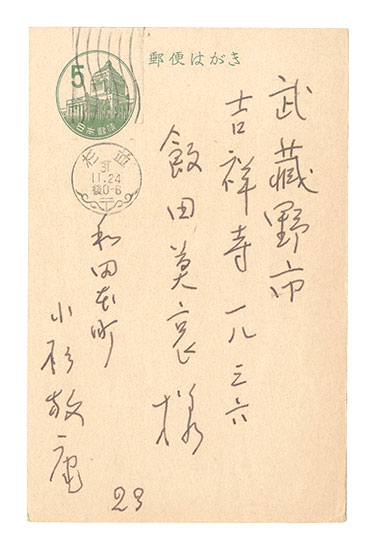 郵便はがき
5
日本郵便
杉並
31
11.24
後0-6
武蔵野市
吉祥寺一八三六
飯田莫哀様
和田本町
小杉放庵
23